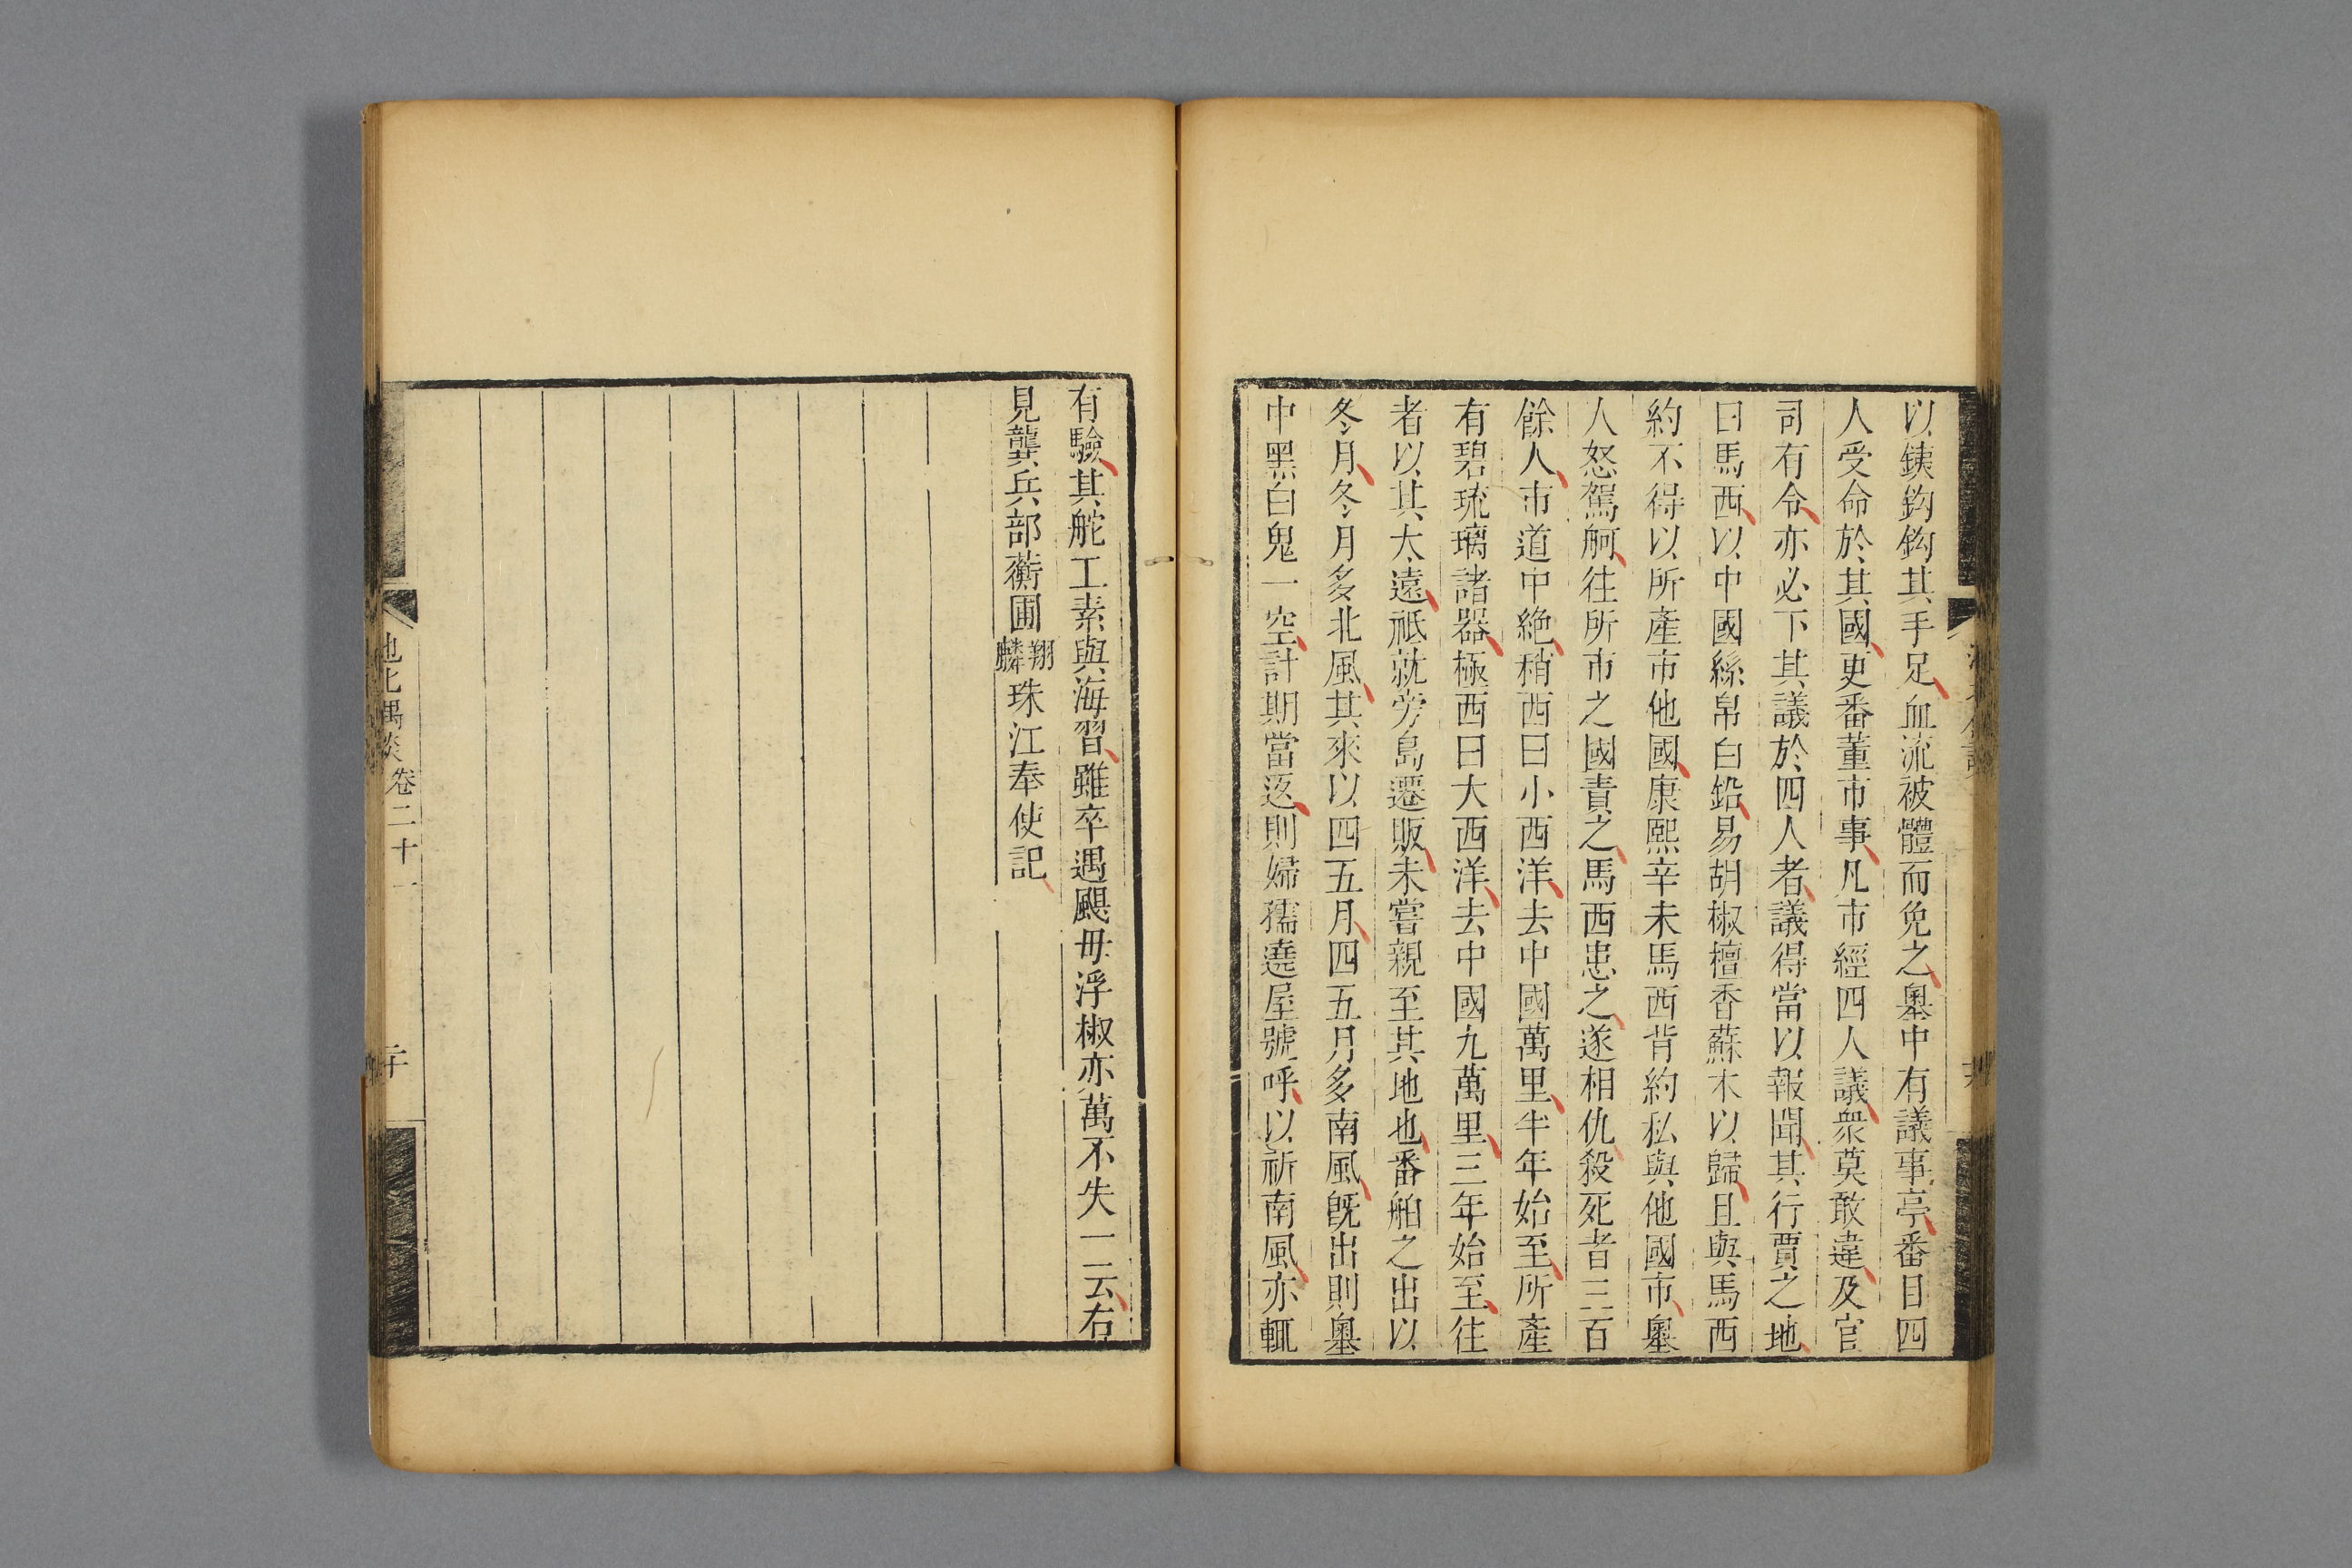 以鐵鈎鈎其手足血流被體而免之㠗中有議事亭番目四
人受命於其國更番董市事凡市經四人議衆莫敢違及官
司有令亦必下其議於四人者議得當以報聞其行賈之地
曰馬西以中國絲帛白鉛易胡椒檀香蘇木以歸且與馬西
約不得以所產市他國康熙辛未馬西背約私與他國市㠗
人怒駕舸往所市之國責之馬西患之遂相仇殺死者三百
餘人市道中絶稍西曰小西洋去中國萬里半年始至所產
有碧琉璃諸器極西曰大西洋去中國九萬里三年始至往
者以其大遠祗就旁島遷販未嘗親至其地也番舶之出以
冬月冬月多北風其來以四五月四五月多南風旣出則㠗
中黑白鬼一空計期當返則婦孺遶屋號呼以祈南風亦輒
有驗其舵工素與海習雖卒遇颶毋浮椒亦萬不失一云右
見龔兵部蘅圃翔麟珠江奉使記
池北偶談 卷二十一 二十